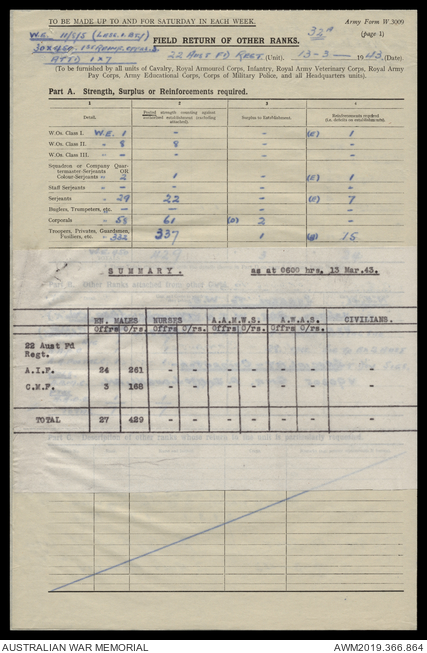 TO BE MADE UP TO AND FOR SATURDAY IN EACH WEEK.
Army Form W.3009
(page 1)
FIELD RETURN OF OTHER RANKS.
22 Aust Fd Regt. (Unit), 13-3- 1943 (Date)
(To be furnished by all units of Cavalry, Royal Armoured Corps, Infantry, Royal Army Veterinary Corps, Royal Army
Pay Corps, Army Educational Corps, Corps of Military Police, and all Headquarters units).
Part A. Strength, Surplus or Reinforcements required.
1 2 3 4
Detail. Posted strength counting against authorised establishment (excluding attached). Surplus to Establishment. Reinforcements required (i.e. deficits on establishment).
W.Os. Class I. W.E. 1 - - 1
W.Os. Class II. " 8 8 - -
W.Os. Class III. - - - -
Squadron or Company Quar-
termaster-Serjeants OR
Colour-Serjeants " 2 1 - 1
Staff Serjeants - - - -
Serjeants " 29 22 - 7
Buglers, Trumpeters, etc. - - - -
Corporals " 59 61 2 -
Troopers, Privates, Guardsmen,
Fusiliers, etc. " 332 337 1 15
SUMMARY. as at 0600 hrs, 13 Mar.43.
EN. MALES NURSES A.A.M.W.S. A.W.A.S. CIVILIANS.
Offrs O/rs. Offrs O/rs. Offrs O/rs. Offrs O/rs.
22 Aust Fd
Regt.
A.I.F. 24 261 - - - - - - -
C.M.F. 3 168 - - - - - - -
TOTAL 27 429 - - - - - - -
AUSTRALIAN WAR MEMORIAL
AWM2019.366.864